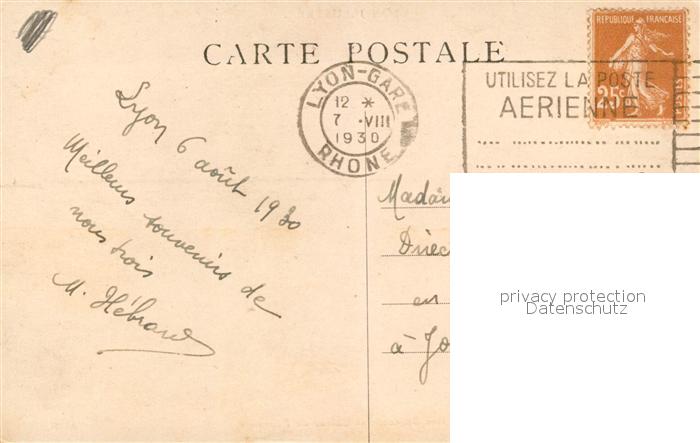 CARTE POSTALE
REPUBLIQUE FRANÇAISE
25c
POSTES
LYON-GARE
12 *
7 · VIII
1930
RHONE
UTILISEZ LA POSTE
AERIENNE
Lyon 6 août 1930
Meilleurs souvenirs de
nous trois
M. Hébrard
Madam
Direc
en
à Jo
privacy protection
Datenschutz